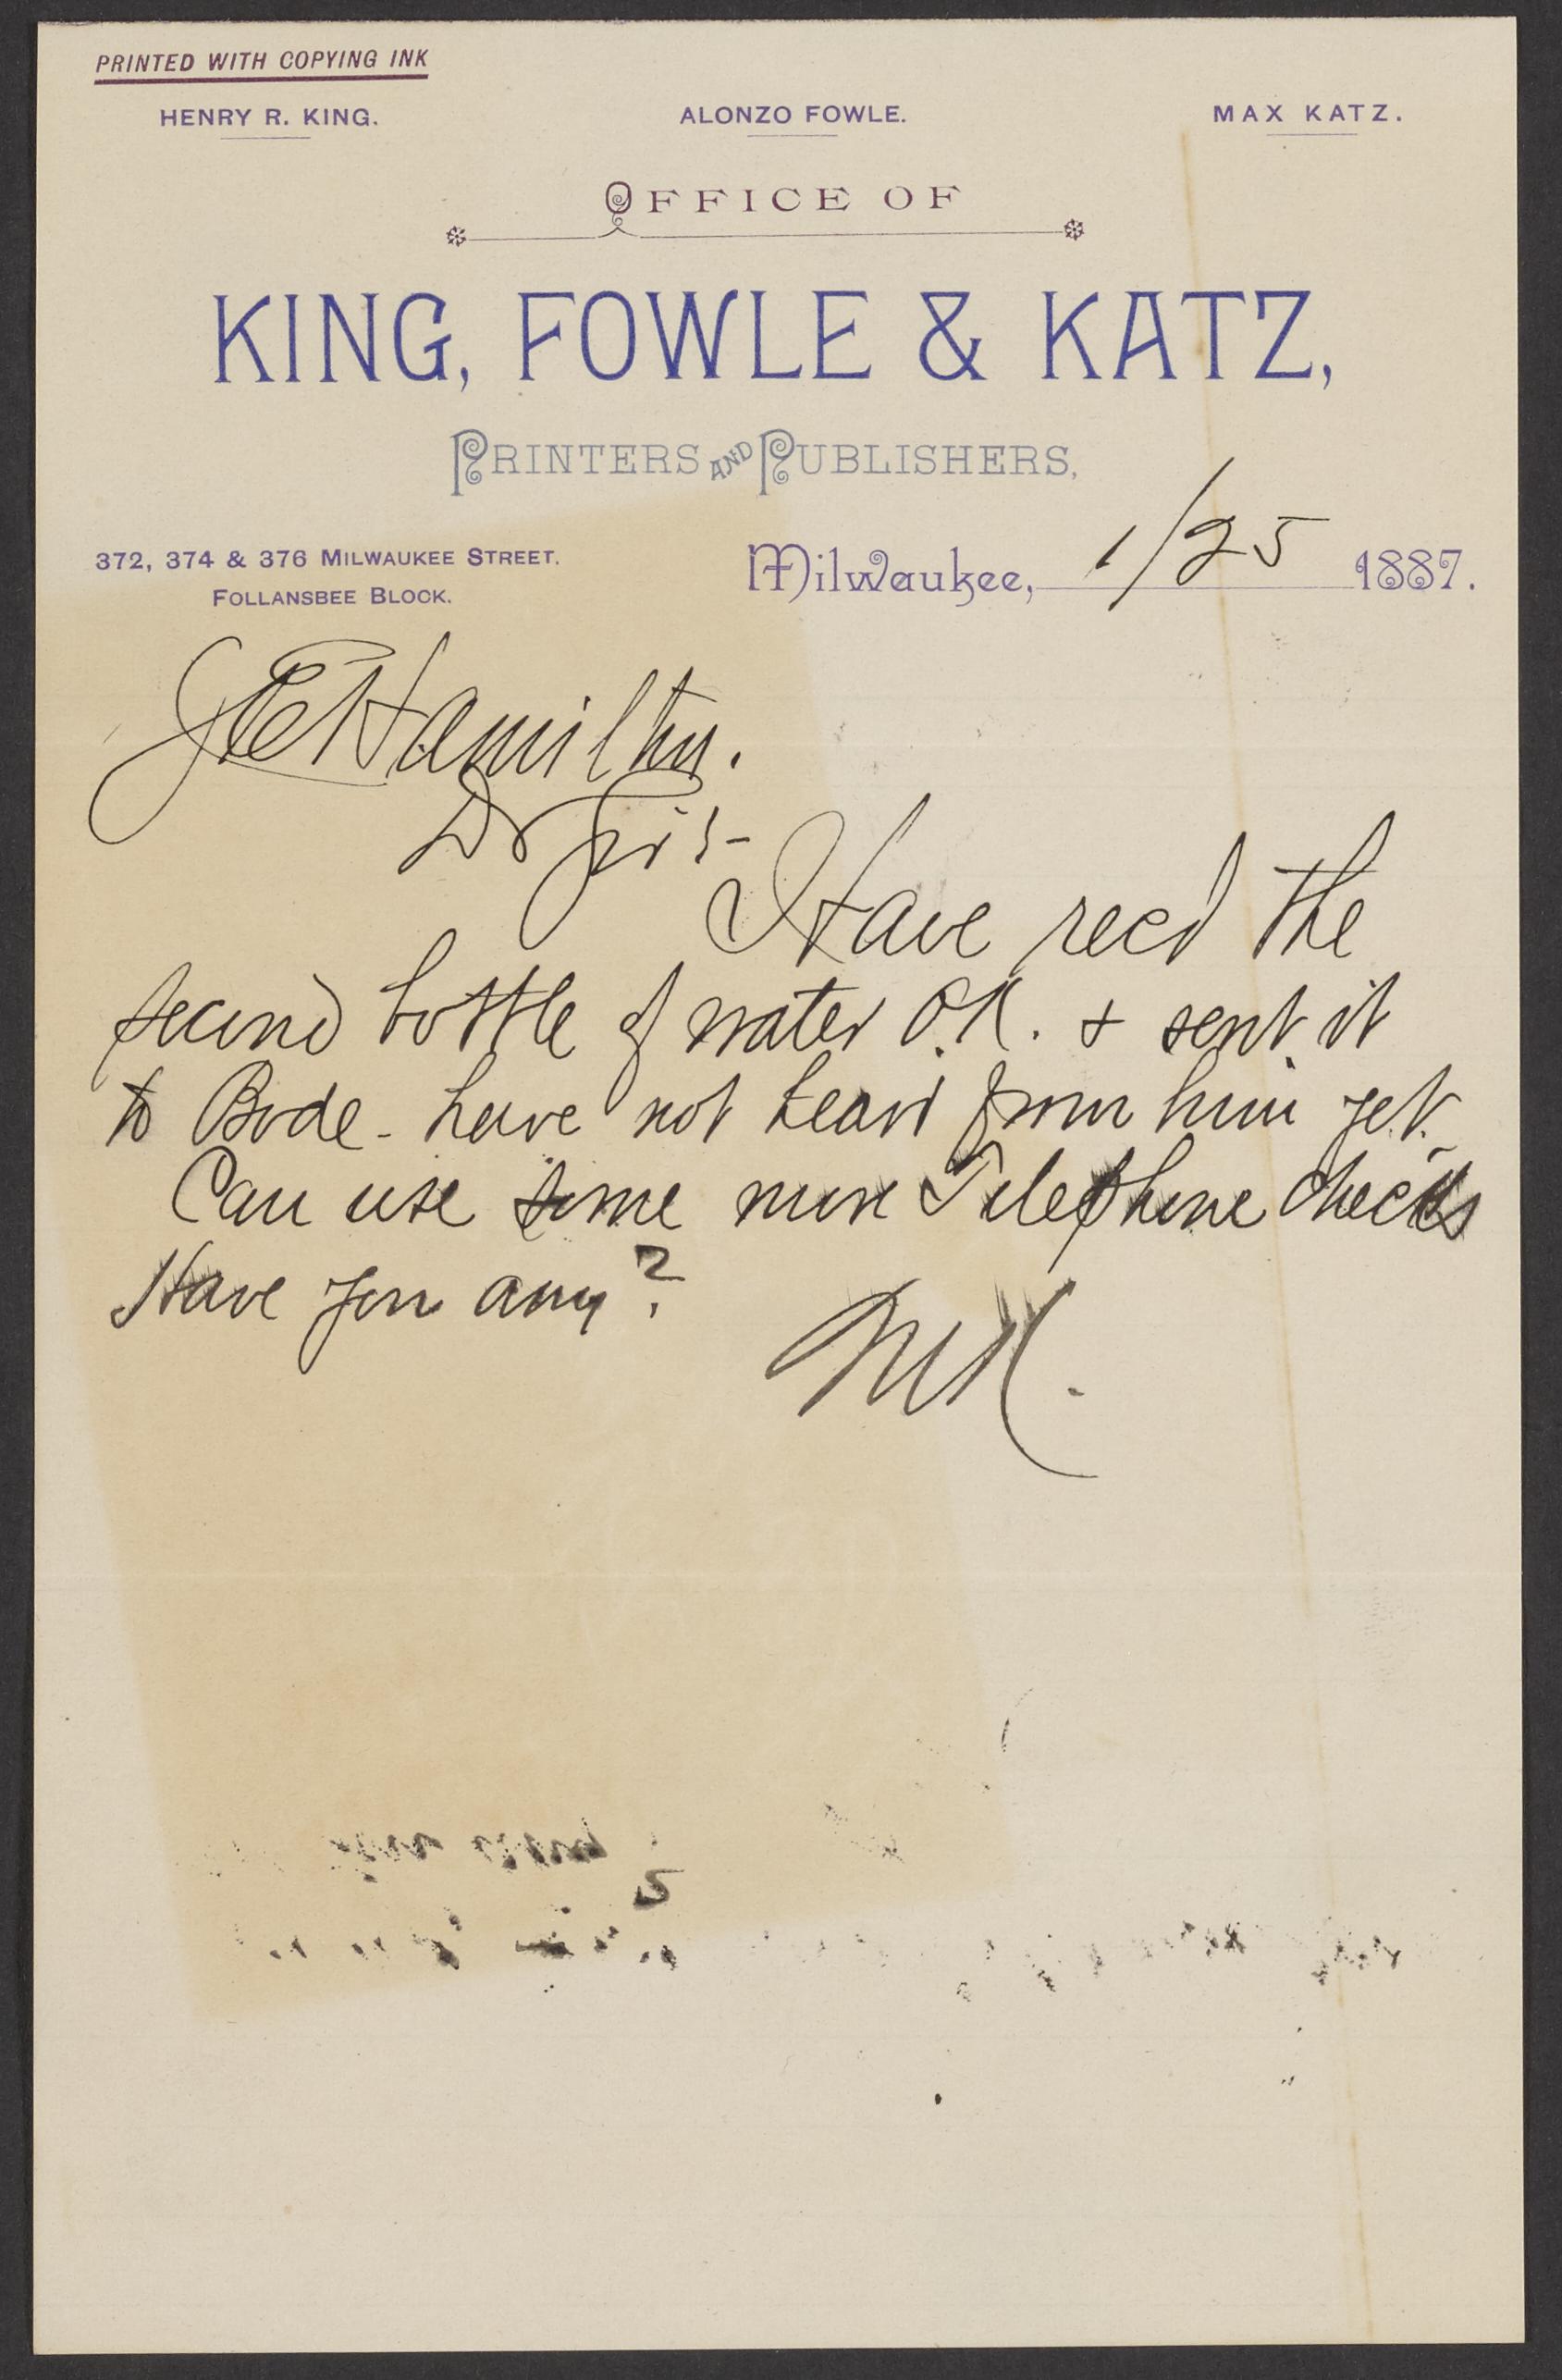 PRINTED WITH COPYING INK
HENRY R. KING. ALONZO FOWLE. MAX KATZ.
OFFICE OF
KING, FOWLE & KATZ,
PRINTERS AND PUBLISHERS,
372, 374 & 376 MILWAUKEE STREET.
FOLLANSBEE BLOCK.
Milwaukee, 1/25 1887.
J E Hamilton.
Dr Sir:-
I Have recd the
second bottle of water O.K. + sent it
to Bode - have not heard from him yet.
Can use some more Telephone checks
Have you any?
MK.